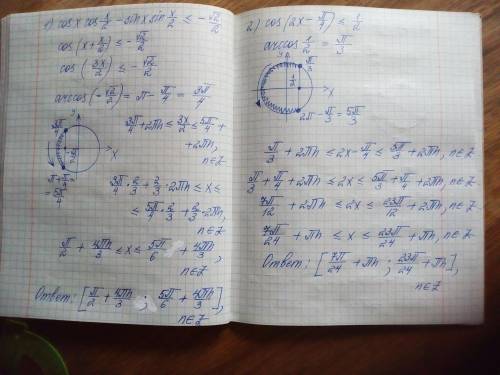 1) cos x cos x/2 − sin x sin x/2 ≤ −√2/2
cos(x + x/2) ≤ −√2/2
cos(3x/2) ≤ −√2/2
arccos(−√2/2) = π − π/4 = 3π/4
3π/4
y
x
π + π/4 = 5π/4
3π/4 + 2πn ≤ 3x/2 ≤ 5π/4 +
+ 2πn,
n∈Z
3π/4 · 2/3 + 2/3 · 2πn ≤ x ≤
≤ 5π/4 · 2/3 + 2/3 · 2πn,
n∈Z
π/2 + 4πn/3 ≤ x ≤ 5π/6 + 4πn/3,
n∈Z
Ответ: [π/2 + 4πn/3 ; 5π/6 + 4πn/3],
n∈Z
2) cos(2x − π/4) ≤ 1/2
arccos 1/2 = π/3
y
π/3
1/2
x
2π − π/3 = 5π/3
π/3 + 2πn ≤ 2x − π/4 ≤ 5π/3 + 2πn, n∈Z
π/3 + π/4 + 2πn ≤ 2x ≤ 5π/3 + π/4 + 2πn, n∈Z
7π/12 + 2πn ≤ 2x ≤ 23π/12 + 2πn, n∈Z
7π/24 + πn ≤ x ≤ 23π/24 + πn, n∈Z
Ответ: [7π/24 + πn ; 23π/24 + πn],
n∈Z